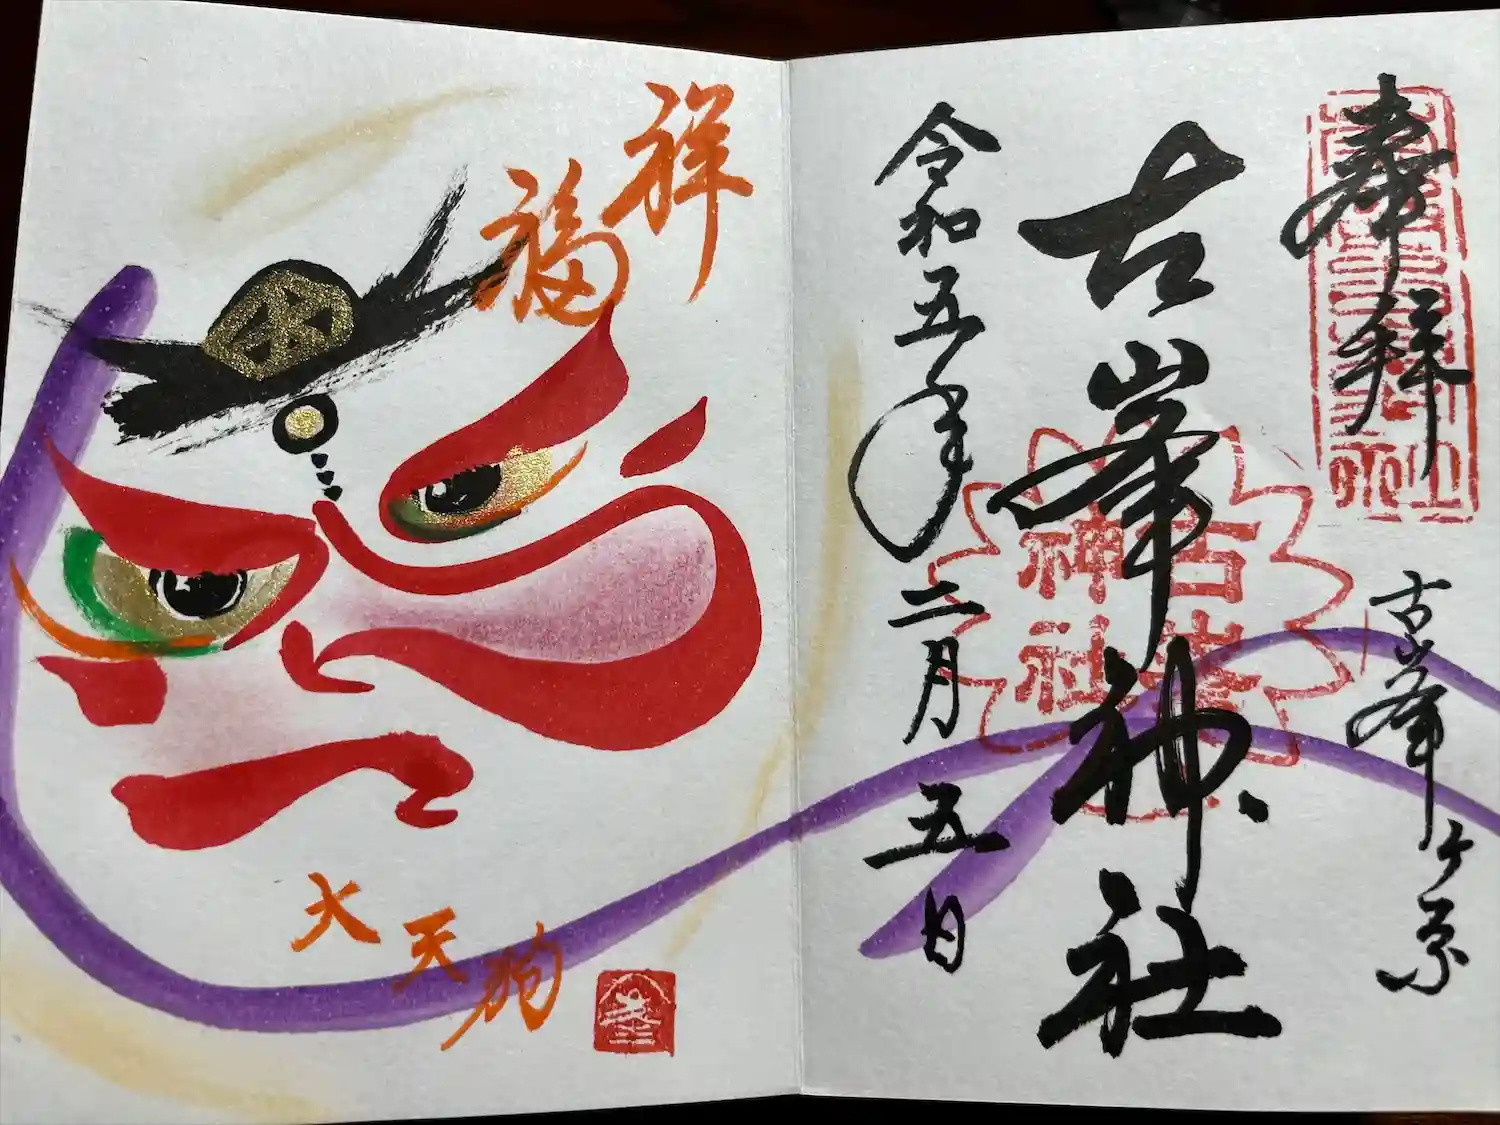 奉拝
古峯ヶ原
古峯神社
令和五年二月五日
古峯
神社
祥福
大天狗